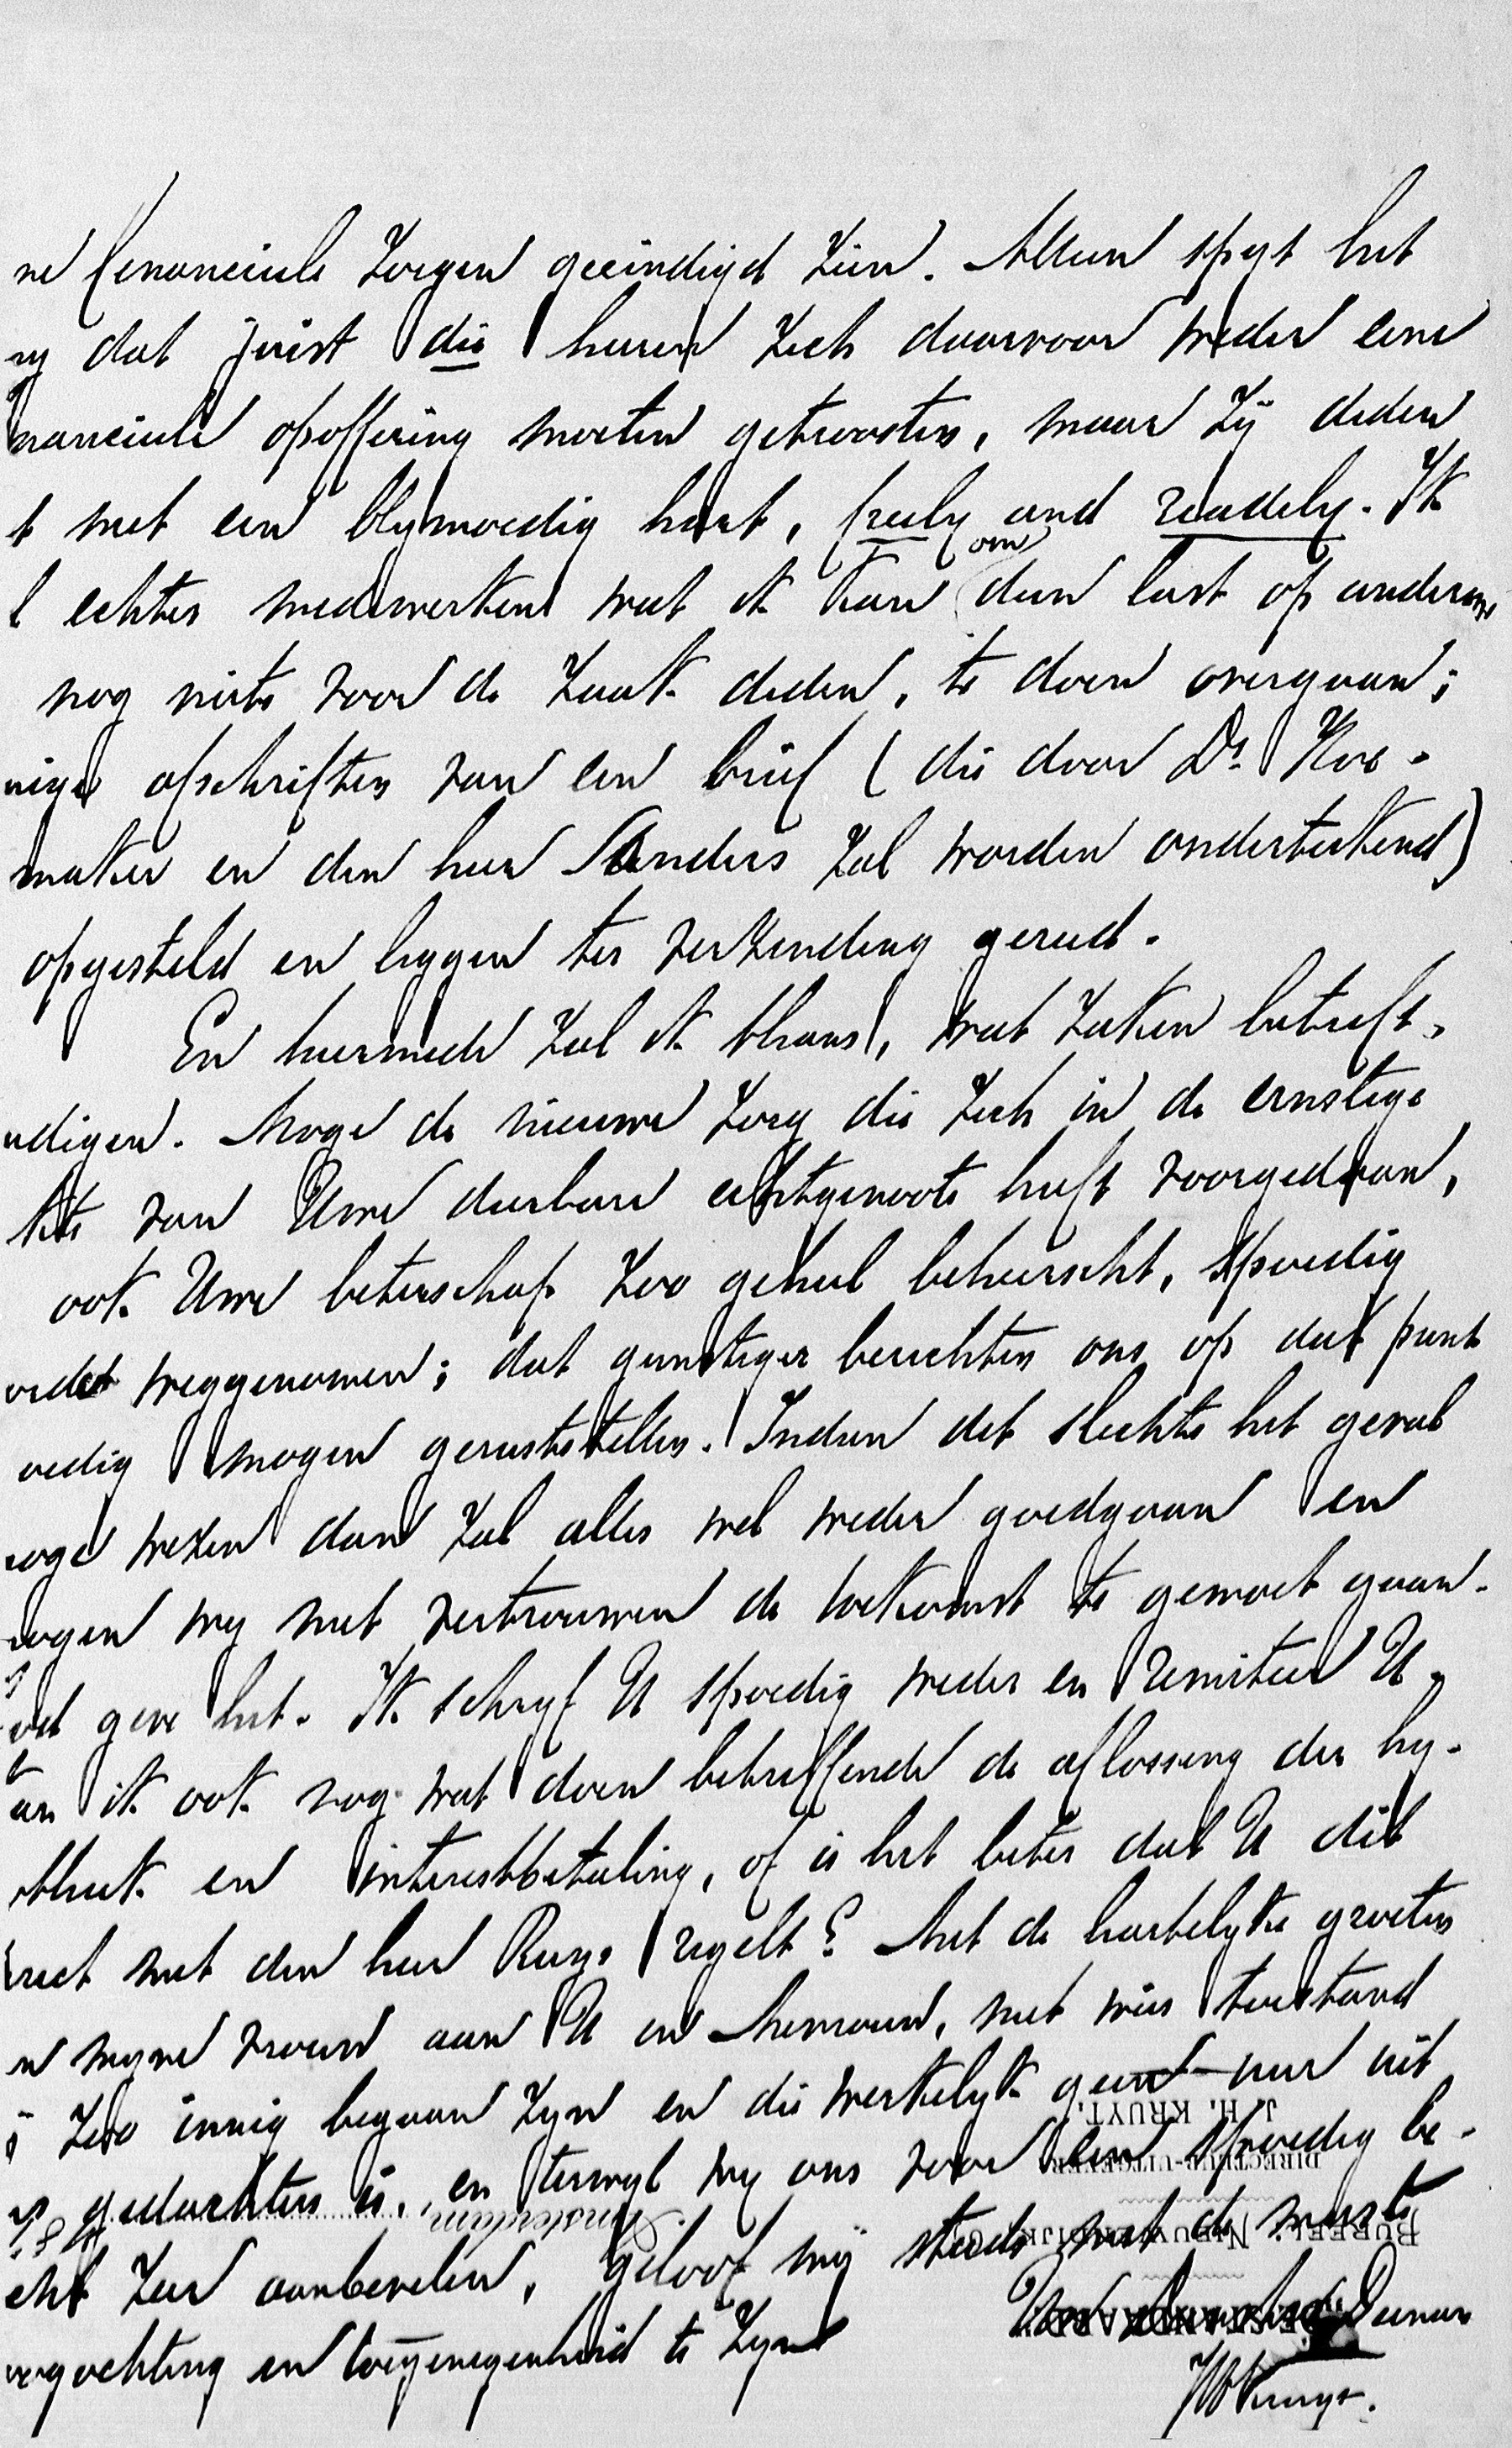 ne financieele zorgen geëindigd zien. Alleen spyt het
my dat juist die heeren zich daarvoor weder eene
nancieele opoffering moeten getroosten, maar zij deden
t met een blymoedig hart, freely and readely. Ik
l echter medewerken wat ik kan om dien last op anderen,
nog niets voor de zaak deden, te doen overgaan;
nige afschriften van een brief (die door Dr. Hoe-
maker en den heer Sanders zal worden onderteekend)
opgesteld en liggen ter verzending gereed.
En hiermede zal ik thans, wat zaken betreft,
ndigen. Moge de nieuwe zorg die zich in de ernstige
kte van Uwe dierbare echtgenoote heeft voorgedaan,
ook Uwe beterschap zoo geheel beheerscht, spoedig
orden weggenomen; dat gunstiger berichten ons op dat punt
oedig mogen geruststellen. Indien dit slechts het geval
oge wezen dan zal alles wel weder goedgaan en
ogen wy met vertrouwen de toekomst te gemoet gaan.
od geve het. Ik schryf U spoedig weder en remitteer U,
an ik ook nog wat doen betreffende de aflossing der hy-
otheek en interestbetaling, of is het beter dat U dit
rect met den heer Ruys regelt? Met de hartelyke groeten
n myne vrouw aan U en Mevrouw, met wier toestand
ij zoo innig begaan zyn en die werkelyk geen uur uit
ze gedachten is, en terwyl wy ons voor een spoedig be-
cht zeer aanbevelen, geloof mij steeds met de meeste
oogachting en toegenegenheid te zyn
Uw dw. Dienaar
JHKruyt.
J. H. KRUYT.
DIRECTEUR-UITGEVER
Amsterdam,
BUREEL: NIEUWENDIJK
"DE STANDAARD"